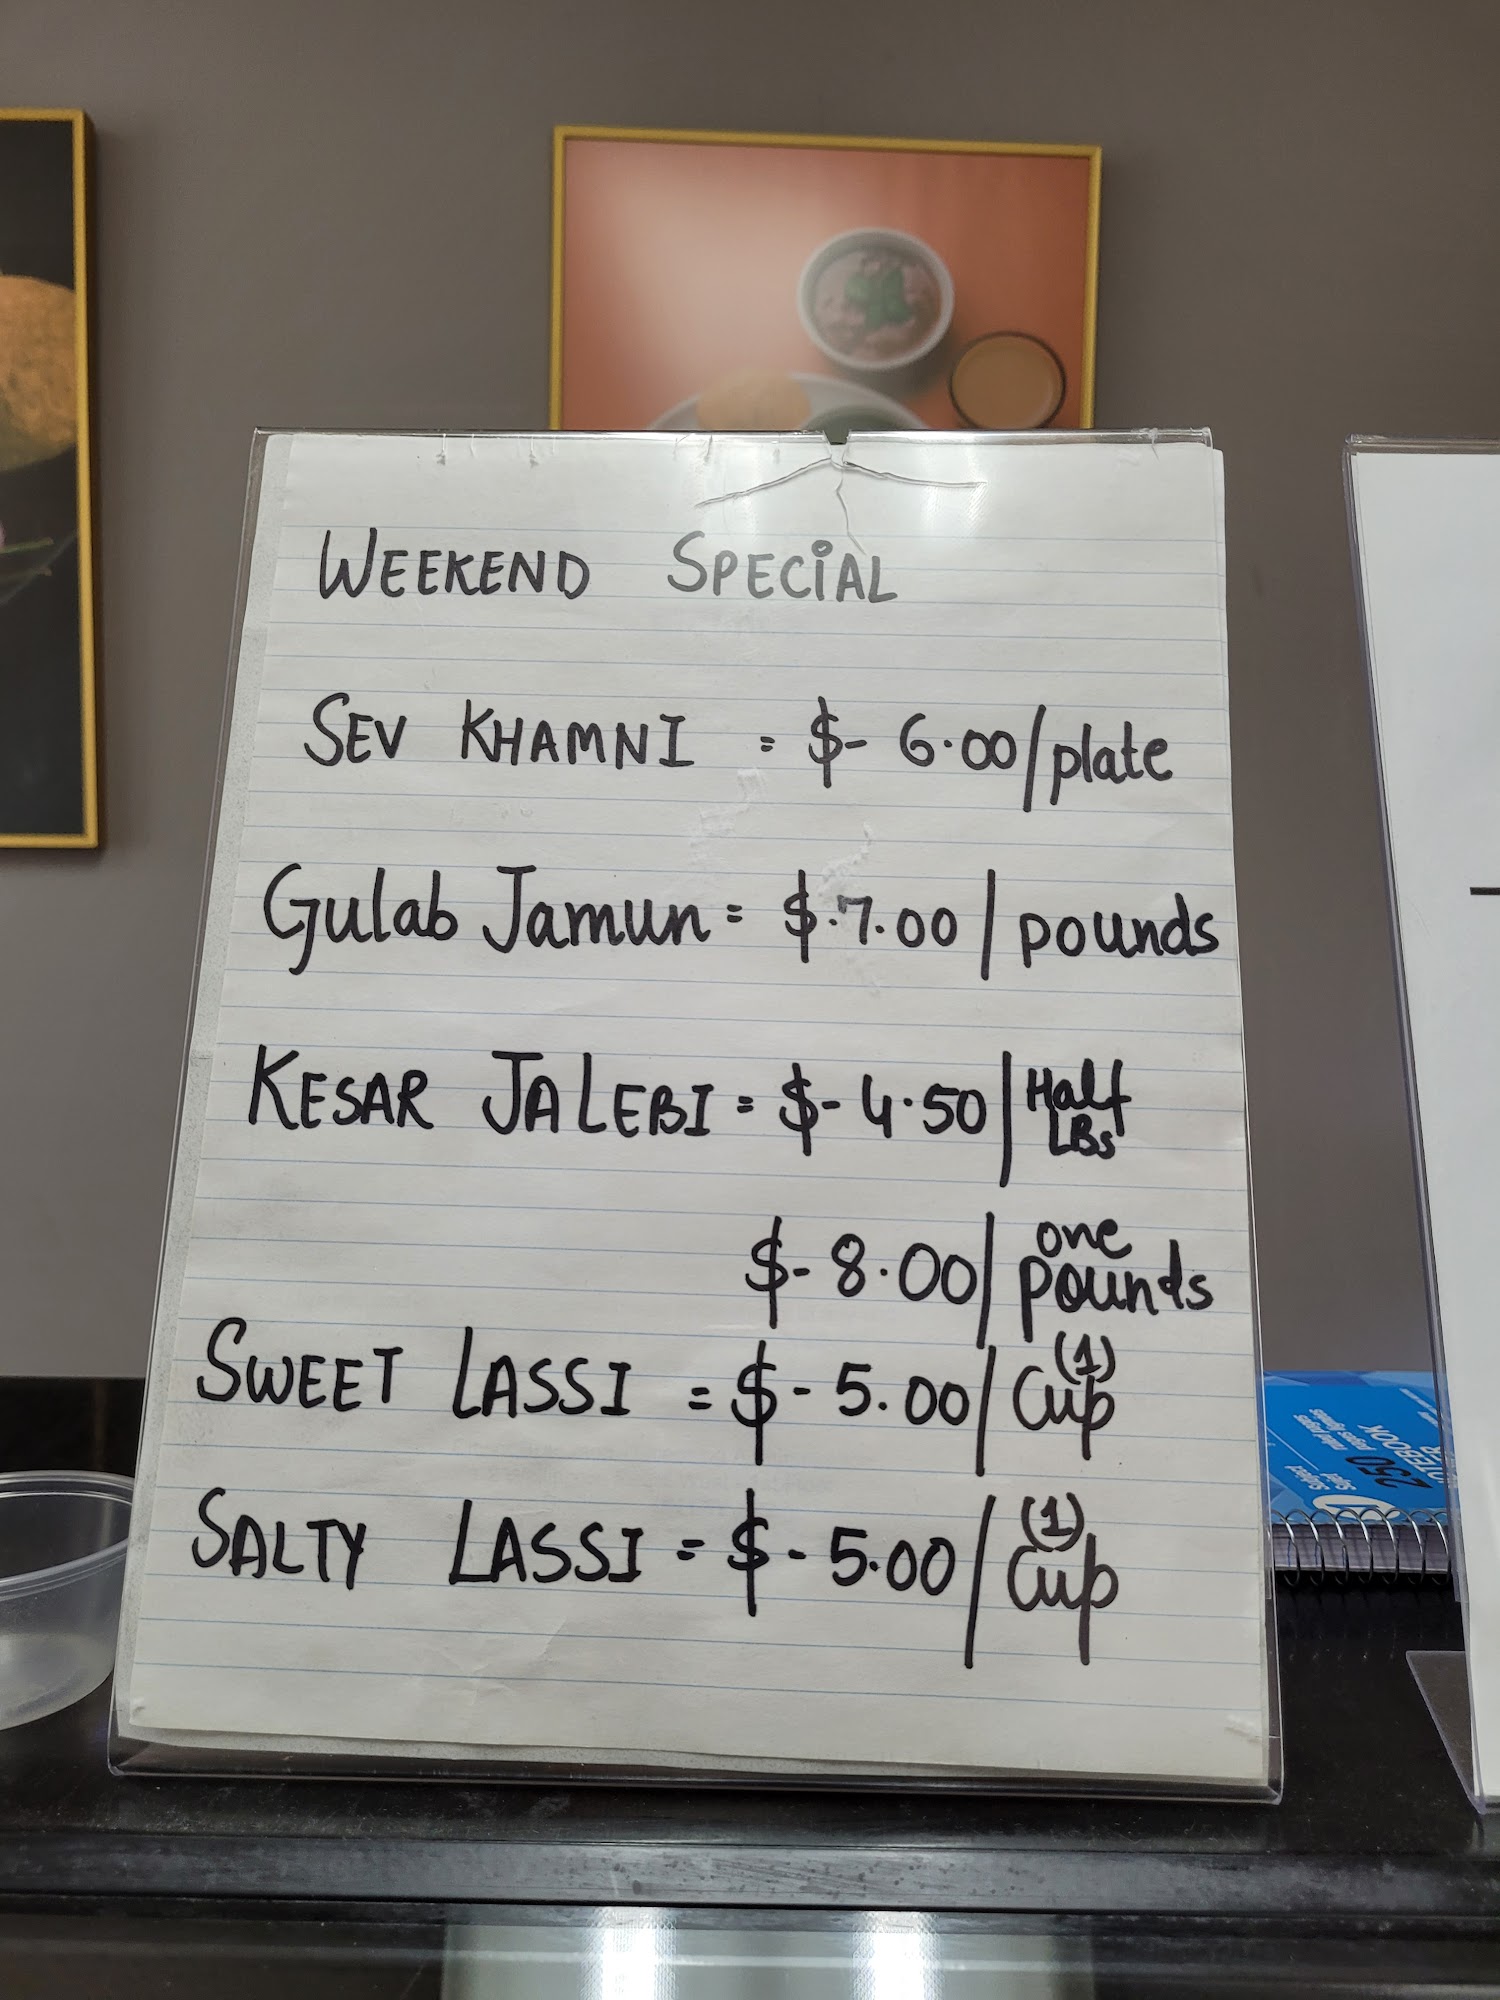 WEEKEND SPECIAL
SEV KHAMNI = $- 6.00/plate
Gulab Jamun = $.7.00 / pounds
KESAR JALEBI = $- 4.50 / Half LBs
$- 8.00 / one pounds
SWEET LASSI = $- 5.00 / (1) Cup
SALTY LASSI = $- 5.00 / (1) Cup
250